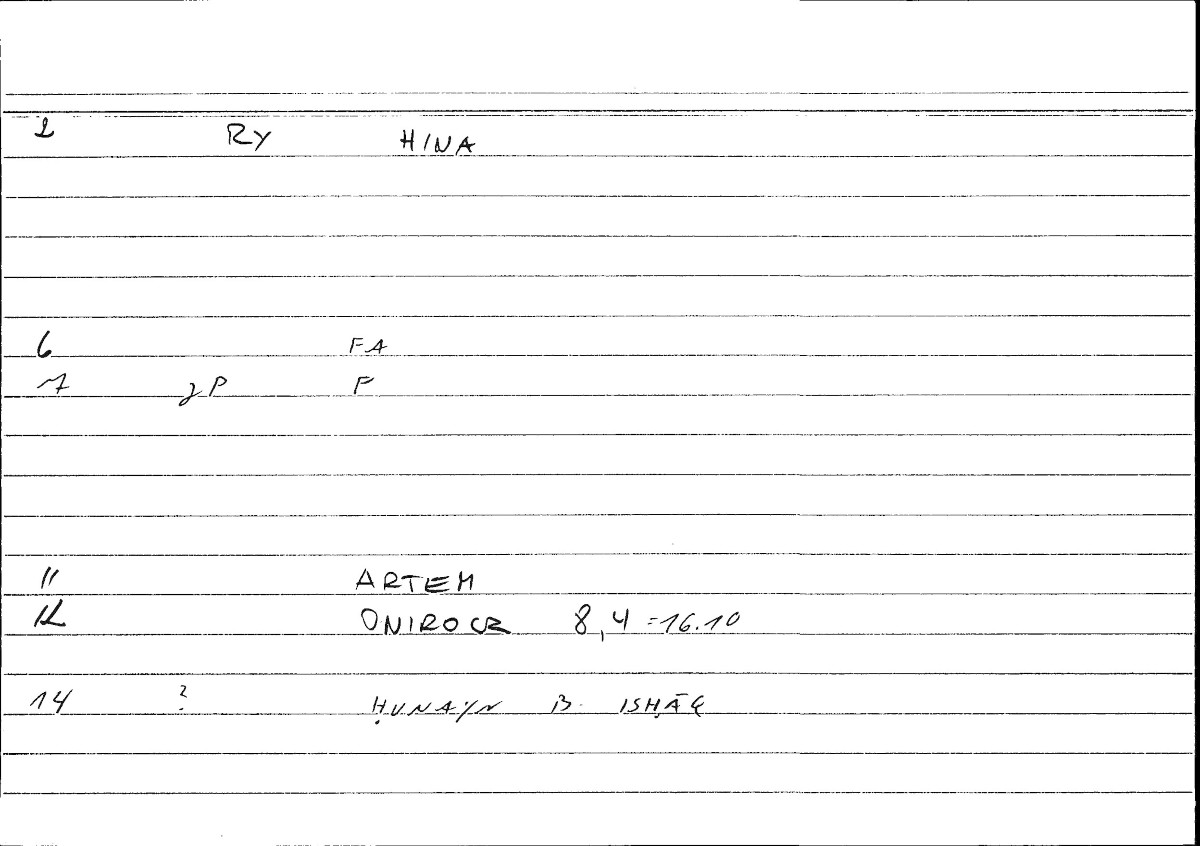 1 RY HINA
6 FA
7 gP F
11 ARTEM
12 ONIROCR 8,4 =16.10
14 ? ḤUNAYN B. ISḤĀQ